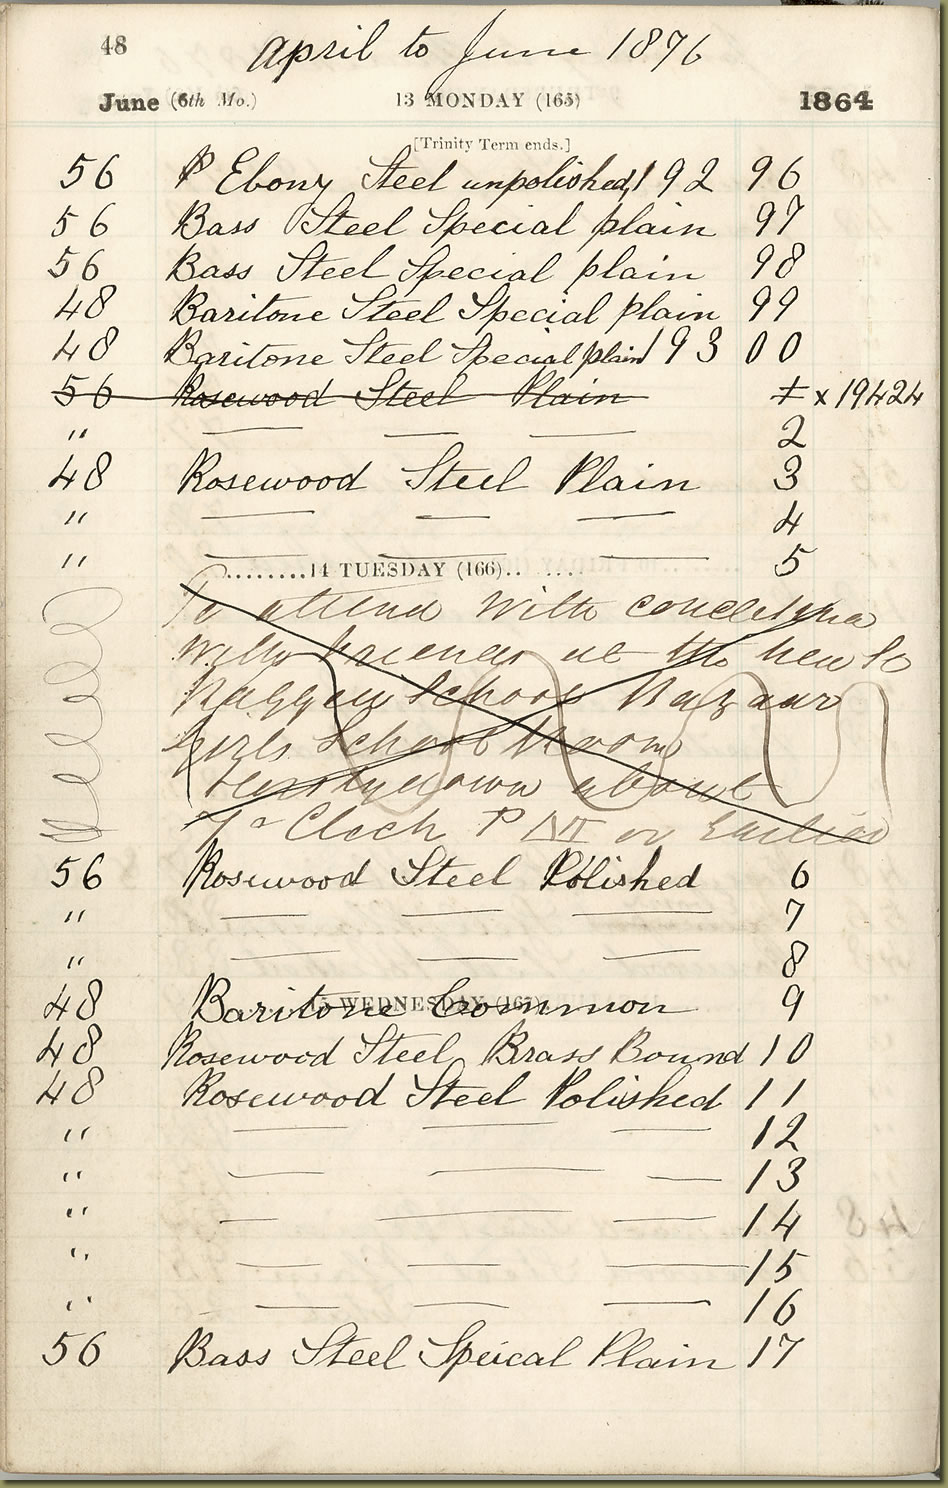 48 April to June 1876
June (6th Mo.) 13 MONDAY (165) 1864
[Trinity Term ends.]
56 Ebony Steel unpolished 192 96
56 Bass Steel Special plain 97
56 Bass Steel Special plain 98
48 Baritone Steel Special plain 99
48 Baritone Steel Special plain 193 00
56 Rosewood Steel Plain 1 x 19424
" — — — 2
48 Rosewood Steel Plain 3
" — — — 4
" — — — 5
........14 TUESDAY (166)........
To attend with
with friends at the new
Raggen School Bazaar
Girls School Room
about
7 o Clock P or Earlier
56 Rosewood Steel Polished 6
" — — — 7
" — — — 8
48 Baritone Common 9
15 WEDNESDAY (167)
48 Rosewood Steel Brass Bound 10
48 Rosewood Steel Polished 11
" — — — 12
" — — — 13
" — — — 14
" — — — 15
" — — — 16
56 Bass Steel Speical Plain 17